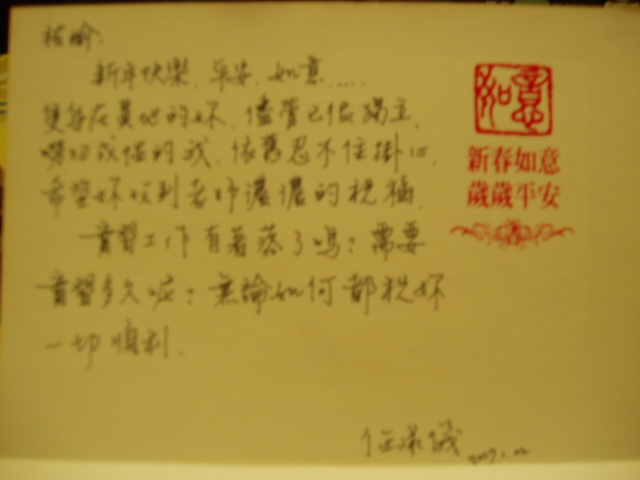 新年快樂、平安、如意.....
隻身在異地的妳,儘管已很獨立,
嘮叨成性的我,依舊忍不住掛心,
希望妳收到老師濃濃的祝福,
實習工作有著落了嗎?需要
實習多久呢?無論如何都祝妳
一切順利.
如意
新春如意
歲歲平安